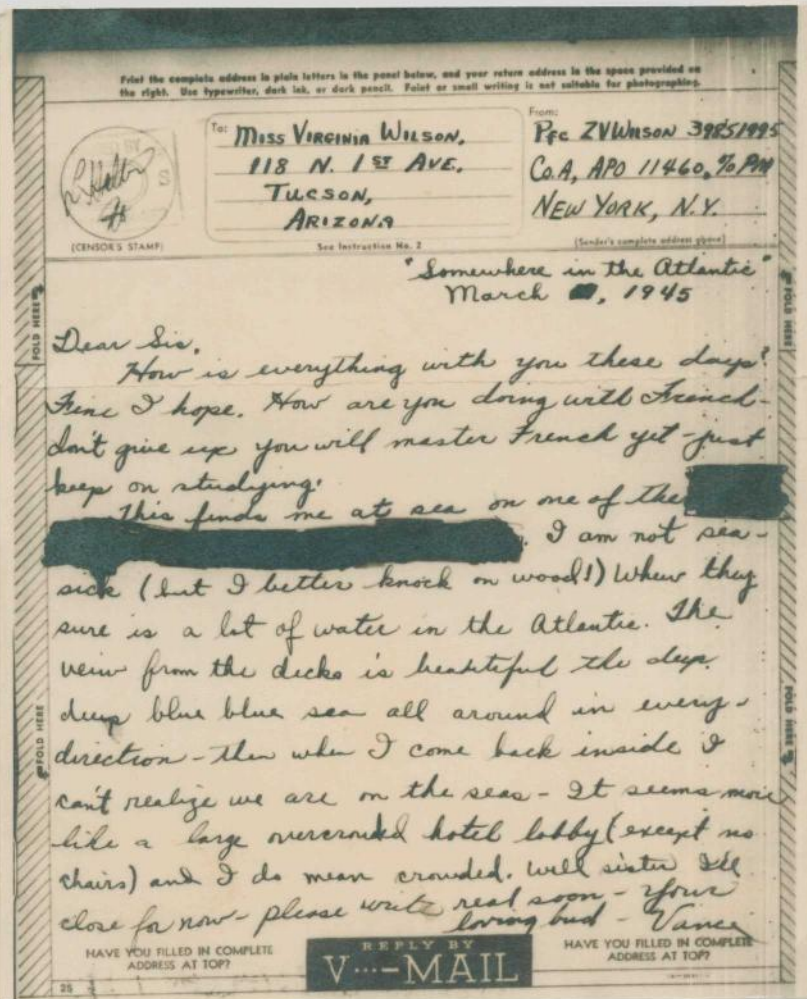 Print the complete address in plain letters in the panel below, and your return address in the space provided on
the right. Use typewriter, dark ink, or dark pencil. Faint or small writing is not suitable for photographing.
To:
MISS VIRGINIA WILSON,
118 N. 1ST AVE.
TUCSON,
ARIZONA
See Instruction No. 2
From:
PFC ZV WILSON 39851995
CO.A, APO 11460, % PM
NEW YORK, N.Y.
(Sender's complete address above)
(CENSOR'S STAMP)
"Somewhere in the Atlantic"
March , 1945
Dear Sis,
How is everything with you these days?
Fine I hope. How are you doing with French-
don't give up you will master French yet - just
keep on studying.
This finds me at sea on one of the
. I am not sea-
sick (but I better knock on wood!) Whew they
sure is a lot of water in the Atlantic. The
veiw from the decks is beautiful the deep
deep blue blue sea all around in every-
direction - then when I come back inside I
can't realize we are on the seas - It seems more
like a large overcrowded hotel lobby (except no
chairs) and I do mean crowded. Well sister I'll
close for now - please write real soon - Your
loving bud - Vance
HAVE YOU FILLED IN COMPLETE
ADDRESS AT TOP?
REPLY BY
V···—MAIL
HAVE YOU FILLED IN COMPLETE
ADDRESS AT TOP?
FOLD HERE
FOLD HERE
FOLD HERE
FOLD HERE
25